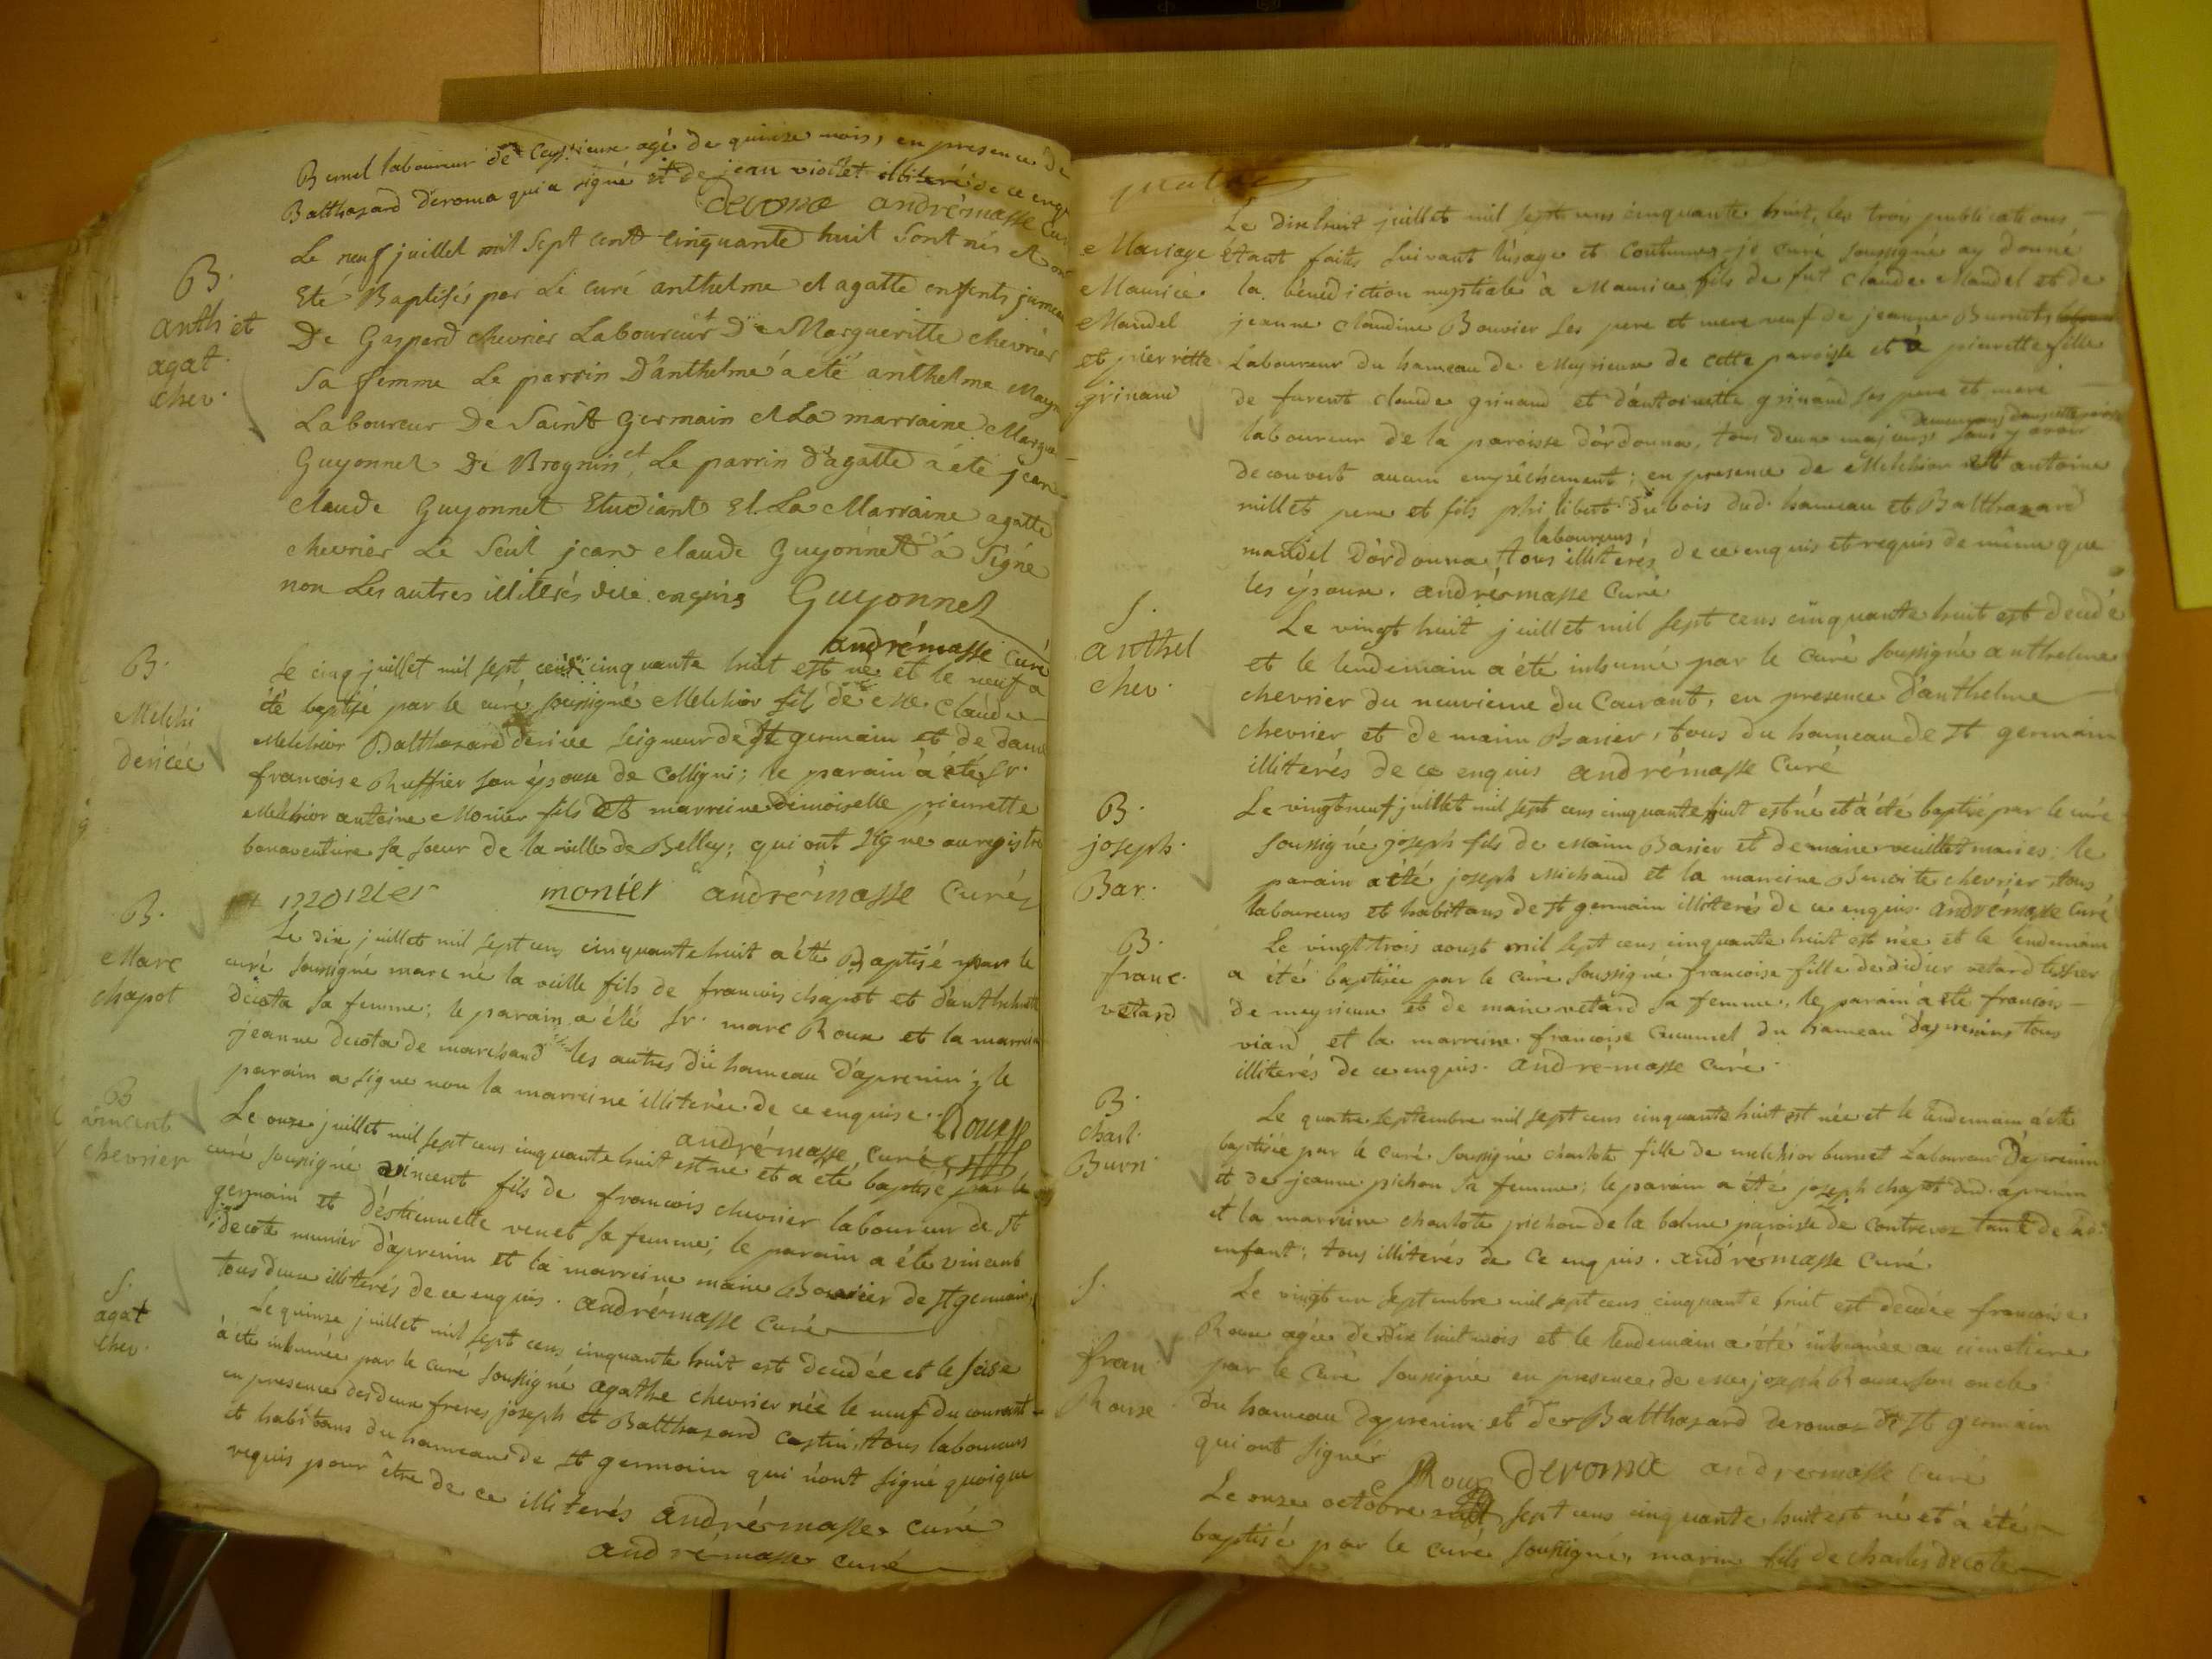 Bernel laboureur de Ceyzieux agé de quinze mois, en presence de
Balthazard Deroma qui a signé et de jean violet illiteré de ce enq
Deroma andrémasse Curé
B.
anth et
agat.
chev.
Le neuf juillet mil Sept cent cinquante huit Sont nés et ont
Eté Baptisés par Le curé anthelme et agatte enfents jumeau
De Gaspard chevrier Laboureur et De Margueritte chevrier
Sa femme Le parrin D'anthelme á été anthelme
Laboureur De Saint Germain et La marraine Margue
Guyonnet De Brognin et Le parrin d'agatte a été jean
claude Guyonnet Etudiant Et La Marraine agatte
chevrier Le Seul jean claude Guyonnet á Signé
non Les autres illiterés de ce enquis Guyonnet
andrémasse Curé
B.
Melchi
dericée
Le cinq juillet mil sept cens cinquante huit est né et le neuf a
été baptisé par le curé soussigné Melchior fils de Mre. Claude
Melchior Balthazard dericée seigneur de St germain et de dame
francoise Ruffier son épouse de Colligni; le parain a été Sr.
Melchior antoine Monier fils et marreine demoiselle pierrette
bonaventure sa soeur de la ville de Belley; qui ont signé au registre
monier andrémasse Curé
B.
Marc
chapot
Le dix juillet mil sept cens cinquante huit a été Baptisé par le
curé soussigné marc né la veille fils de francois chapot et d'anthelmette
decota sa femme; le parain a été Sr. marc Roux et la marreine
jeanne decota de marchand les autres du hameau d'aprenin; le
parain a signé non la marreine illiterée de ce enquise. Roux
andrémasse curé
B
vincent
chevrier
Le onze juillet mil sept cens cinquante huit est né et a été baptisé par le
curé soussigné vincent fils de francois chevrier laboureur de St
germain et d'éstiennette venet sa femme; le parain a été vincent
decote munier d'aprenin et la marreine marie Bouvier de St germain,
tous deux illiterés de ce enquis. andrémasse Curé
S.
agat
chev.
Le quinze juillet mil sept cens cinquante huit est decedée et le seise
à été inhumée par le curé soussigné agathe chevrier née le neuf du courant
en presence des deux freres joseph et Balthazard castin, tous laboureurs
et habitans du hameau de St germain qui n'ont signé quoique
requis pour être de ce illiterés andrémasse curé
andrémasse curé
quatre
Mariage
Maurice
Mandel
et pierrette
grinand
Le dix huit juillet mil sept cens cinquante huit, les trois publications
étant faites suivant l'usage et coutume, je curé soussigné ay donné
la bénédiction nuptiale à Maurice fils de fut claude Mandel et de
jeanne claudine Bouvier ses pere et mere veuf de jeanne Burnet
Laboureur du hameau de Meyrieux de cette paroisse et à pierrette fille
de furent claude grinand et d'antoinette grinand ses pere et mere
demeurans dans cette paroisse
laboureur de la paroisse d'ordonna, tous deux majeurs sans y avoir
decouvert aucun empêchement; en presence de Melchior et antoine
millet pere et fils philibert du bois dud. hameau et Balthazard
laboureurs,
mandel d'ordonna, tous illiterés de ce enquis et requis de même que
les époux. andrémasse Curé
S.
anthel
chev.
Le vingt huit juillet mil sept cens cinquante huit est decedé
et le lendemain a été inhumé par le curé soussigné anthelme
chevrier du neuvieme du Courant, en presence d'anthelme
chevrier et de marin Barier, tous du hameau de St germain
illiterés de ce enquis andrémasse Curé
B.
joseph.
Bar.
Le vingt neuf juillet mil sept cens cinquante huit est né et à été baptisé par le curé
soussigné joseph fils de marin Barier et de marie veuillet mariés; le
parain a été joseph Michaud et la marreine Benoite chevrier tous
laboureurs et habitans de St germain illiterés de ce enquis. andrémasse Curé
B.
franc.
vetard
Le vingt trois aoust mil sept cens cinquante huit est née et le lendemain
a été baptisée par le curé soussigné francoise fille de didier vetard tissier
de meyrieux et de marie vetard sa femme; le parain a été francois
viard et la marreine francoise Cumunel du hameau d'aprenin tous
illiterés de ce enquis. andrémasse curé.
B.
charl.
Burn.
Le quatre septembre mil sept cens cinquante huit est née et le lendemain a été
baptisée par le curé soussigné charlote fille de melchior burnet Laboureur D'aprenin
et de jeanne pichon sa femme; le parain a été joseph chapot dud. aprenin
et la marreine charlote pichon de la balme paroisse de contrevoz tante de lad.
enfant; tous illiterés de ce enquis. andrémasse Curé.
S.
fran.
Rouxe
Le vingt un septembre mil sept cens cinquante huit est decedée francoise
Roux agée de dix huit mois et le lendemain a été inhumée au cimetiere
par le curé soussigné en presence de Mre joseph Roux son oncle
du hameau d'aprenin et de Balthazard deromas de St germain
qui ont signé
Roux Deroma andrémasse Curé
Le onze octobre mil sept cens cinquante huit est né et à été
baptisé par le curé soussigné, marin fils de charles decote